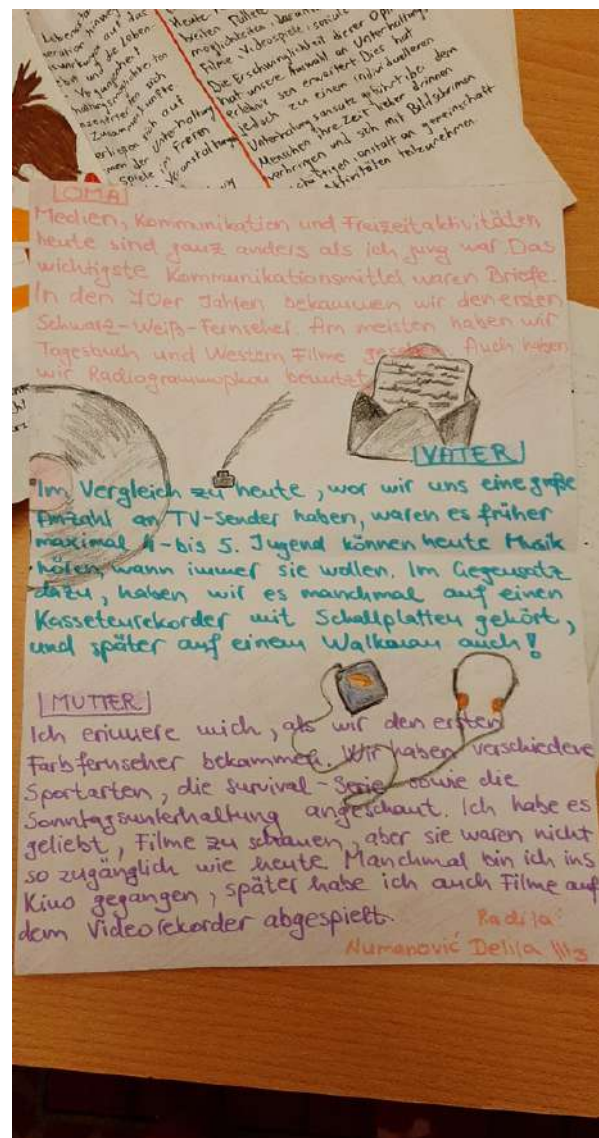 Heute
breiten Palette
möglichkeiten, darun
Filme, Videospiele, soziale
Die Erschwinglichkeit dieser Opti
hat unsere Auswahl an Unterhaltung
erweitert Dies hat
jedoch zu einem individuelleren
Unterhaltungsansatz geführt, bei dem
Menschen ihre Zeit lieber drinnen
verbringen und sich mit Bildschirmen
schäftigen, anstatt an gemeinschaft
aktivitäten teilzunehmen
auf das
und die Leben
Vergangenheit
sich
Zusammenkünfte
verließen sich auf
men der Unterhaltung
Spiele im Freien
Veranstaltungen
OMA
Medien, Kommunikation und Freizeitaktivitäten
heute sind ganz anders als ich jung war. Das
wichtigste Kommunikationsmittel waren Briefe.
In den 70er Jahren bekammen wir den ersten
Schwarz-Weiß-Fernseher. Am meisten haben wir
Tagesbuch und Western Filme gesehen. Auch haben
wir Radiogrammophon benutzt
VATER
Im Vergleich zu heute, wor wir uns eine große
Anzahl an TV-Sender haben, waren es früher
maximal 4-bis 5. Jugend können heute Musik
hören, wann immer sie wollen. Im Gegensatz
dazu, haben wir es manchmal auf einen
Kasseteurekorder mit Schallplatten gehört,
und später auf einem Walkman auch!
MUTTER
Ich erinnere mich, als wir den ersten
Farbfernseher bekammen. Wir haben verschiedene
Sportarten, die survival-Serie sowie die
Sonntagsunterhaltung angeschaut. Ich habe es
geliebt, Filme zu schauen, aber sie waren nicht
so zugänglich wie heute Manchmal bin ich ins
Kino gegangen, später habe ich auch Filme auf
dem Videorekorder abgespielt.
Radila:
Numanović Delila III3